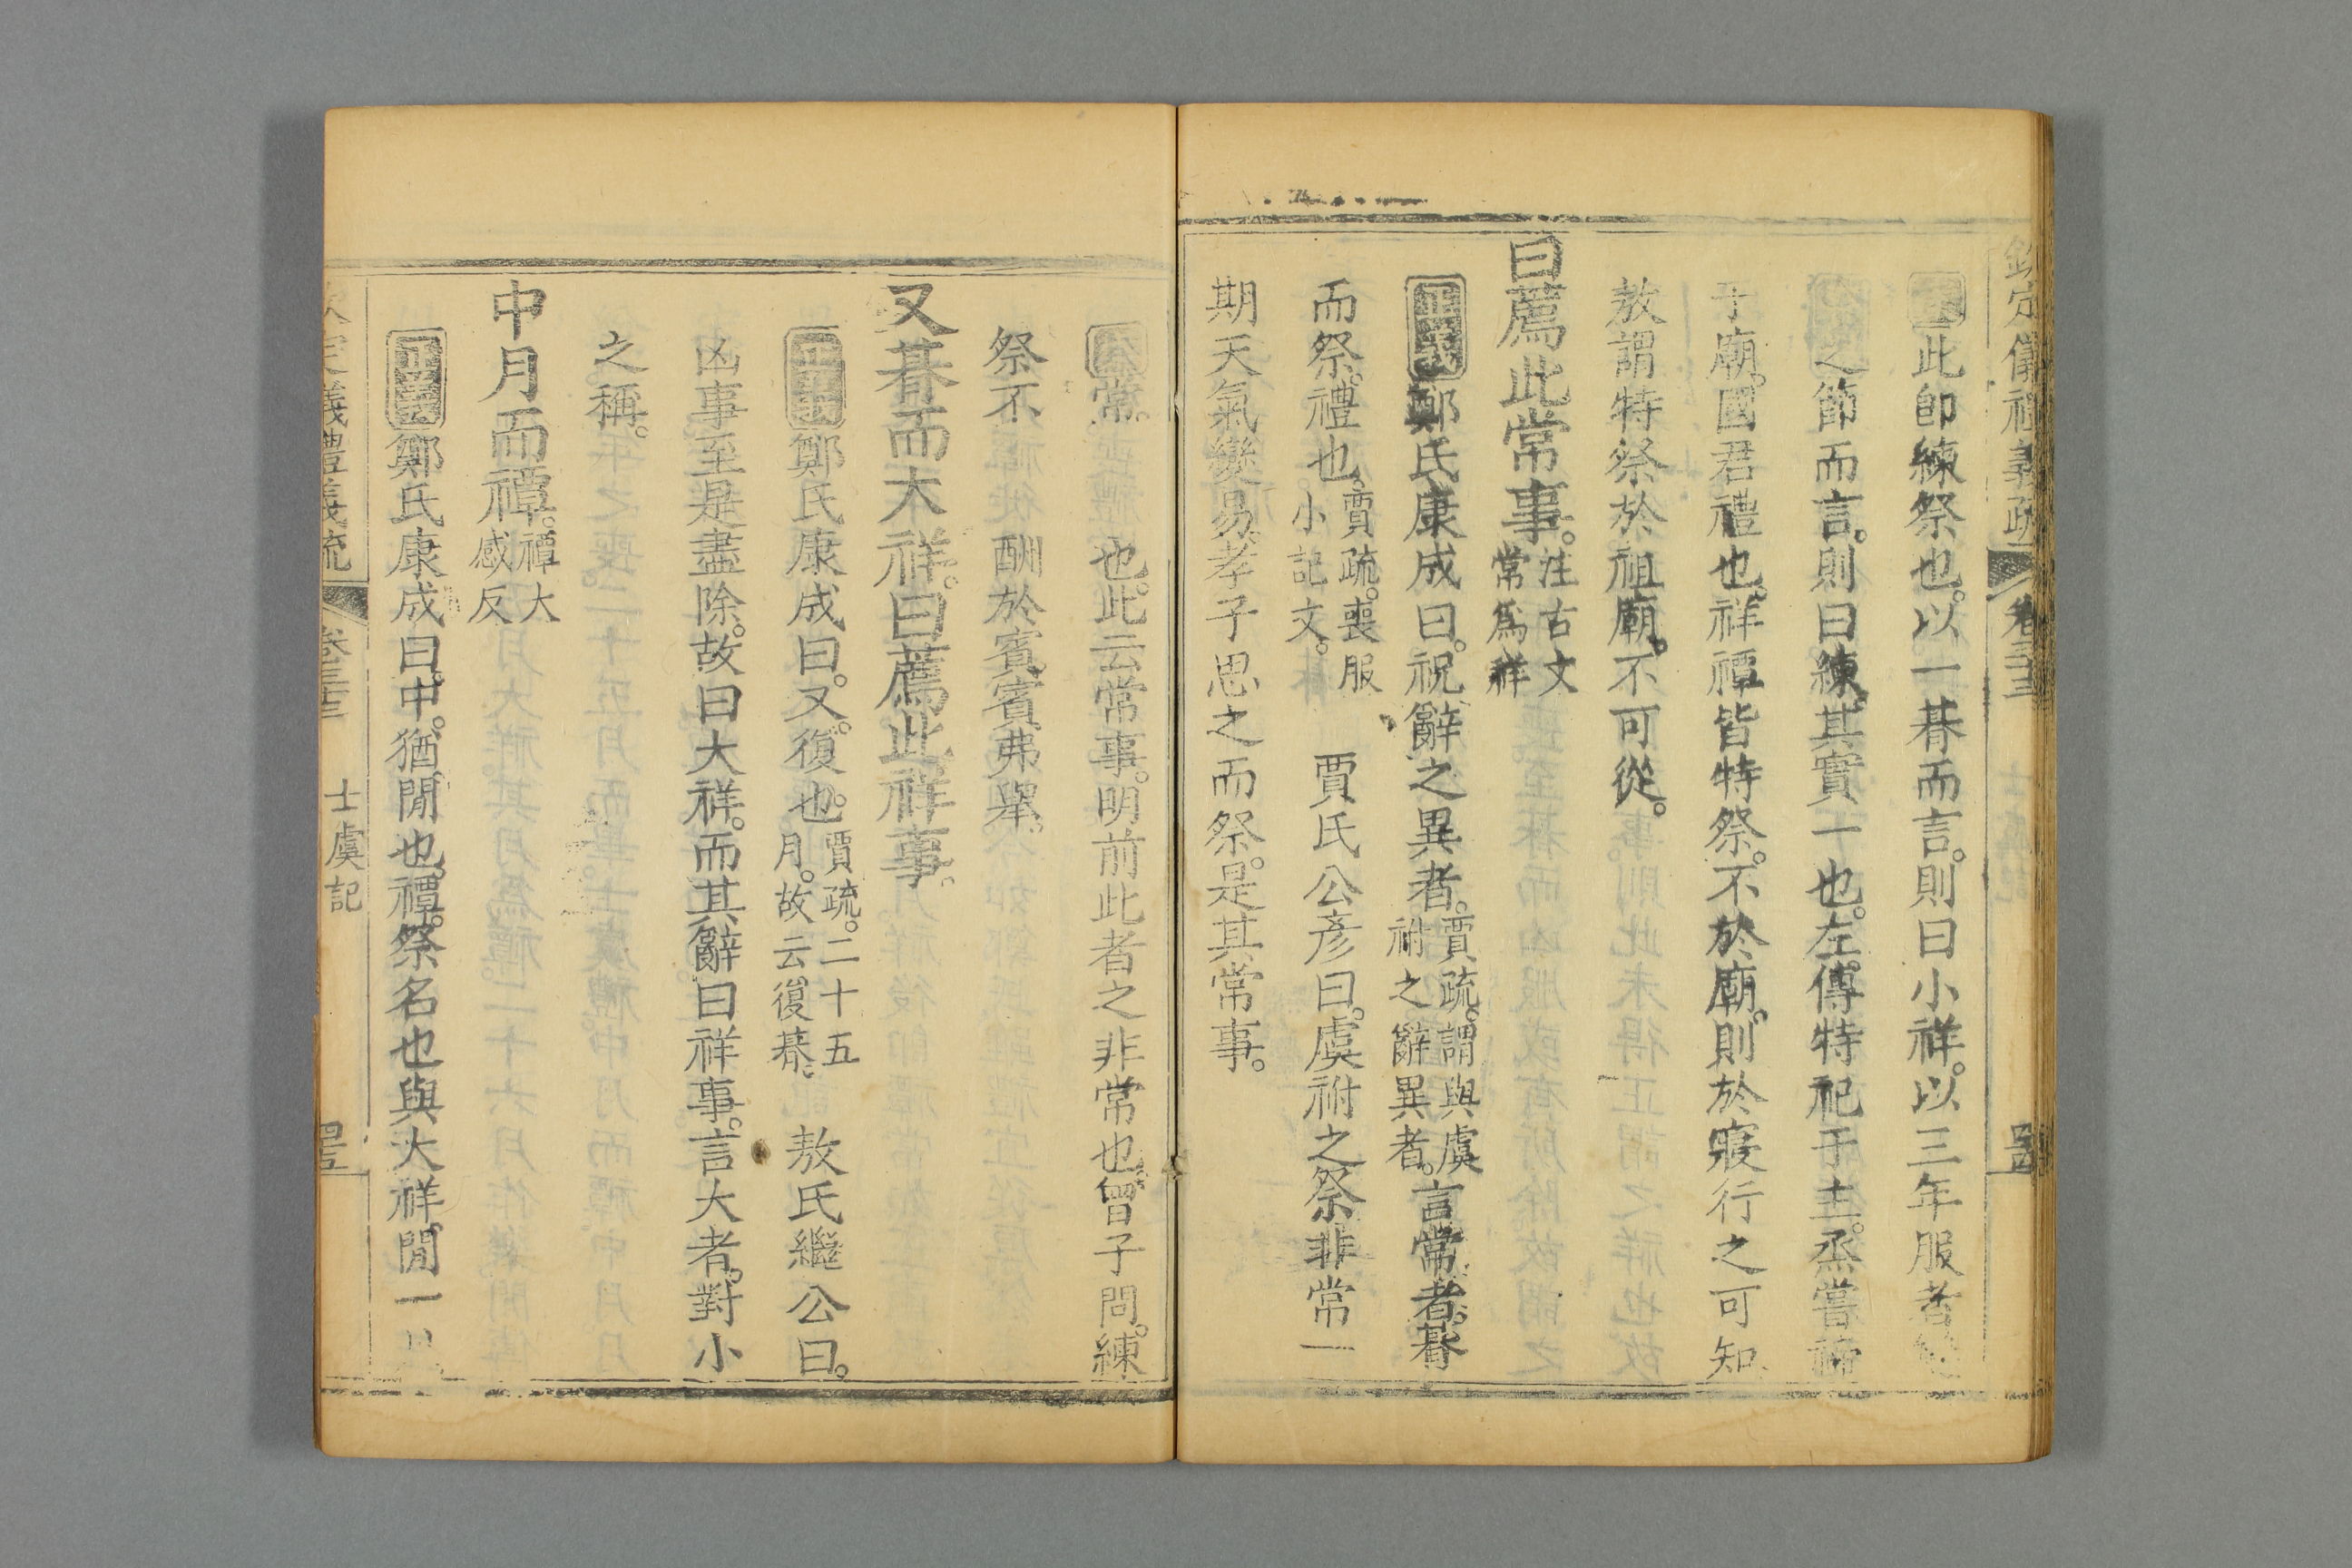 欽定儀禮義疏 卷三十三
此卽練祭也。以一朞而言。則曰小祥。以三年服者
之節而言。則曰練。其實一也。左傳特祀于主。烝嘗禘
于廟。國君禮也。祥禫皆特祭。不於廟。則於寢行之可知
敖謂特祭於祖廟。不可從。
曰薦此常事。注古文
常爲祥
正義鄭氏康成曰。祝辭之異者。賈疏。謂與虞
祔之辭異者。言常者。朞
而祭。禮也。賈疏。喪服
小記文。 賈氏公彥曰。虞祔之祭非常一
期天氣變易。孝子思之而祭。是其常事。
常。 也。此云常事。明前此者之非常也。曾子問。練
祭不 酬於賓。賓弗舉。
又朞而大祥。曰薦此祥事。
正義鄭氏康成曰。又。復也。賈疏。二十五
月。故云復朞。 敖氏繼公曰。
凶事至是盡除。故曰大祥。而其辭曰祥事。言大者。對小
之稱。
中月而禫。禫大
感反
正義鄭氏康成曰。中。猶閒也。禫。祭名也。與大祥。閒一
義禮義疏 卷三十三 士虞記